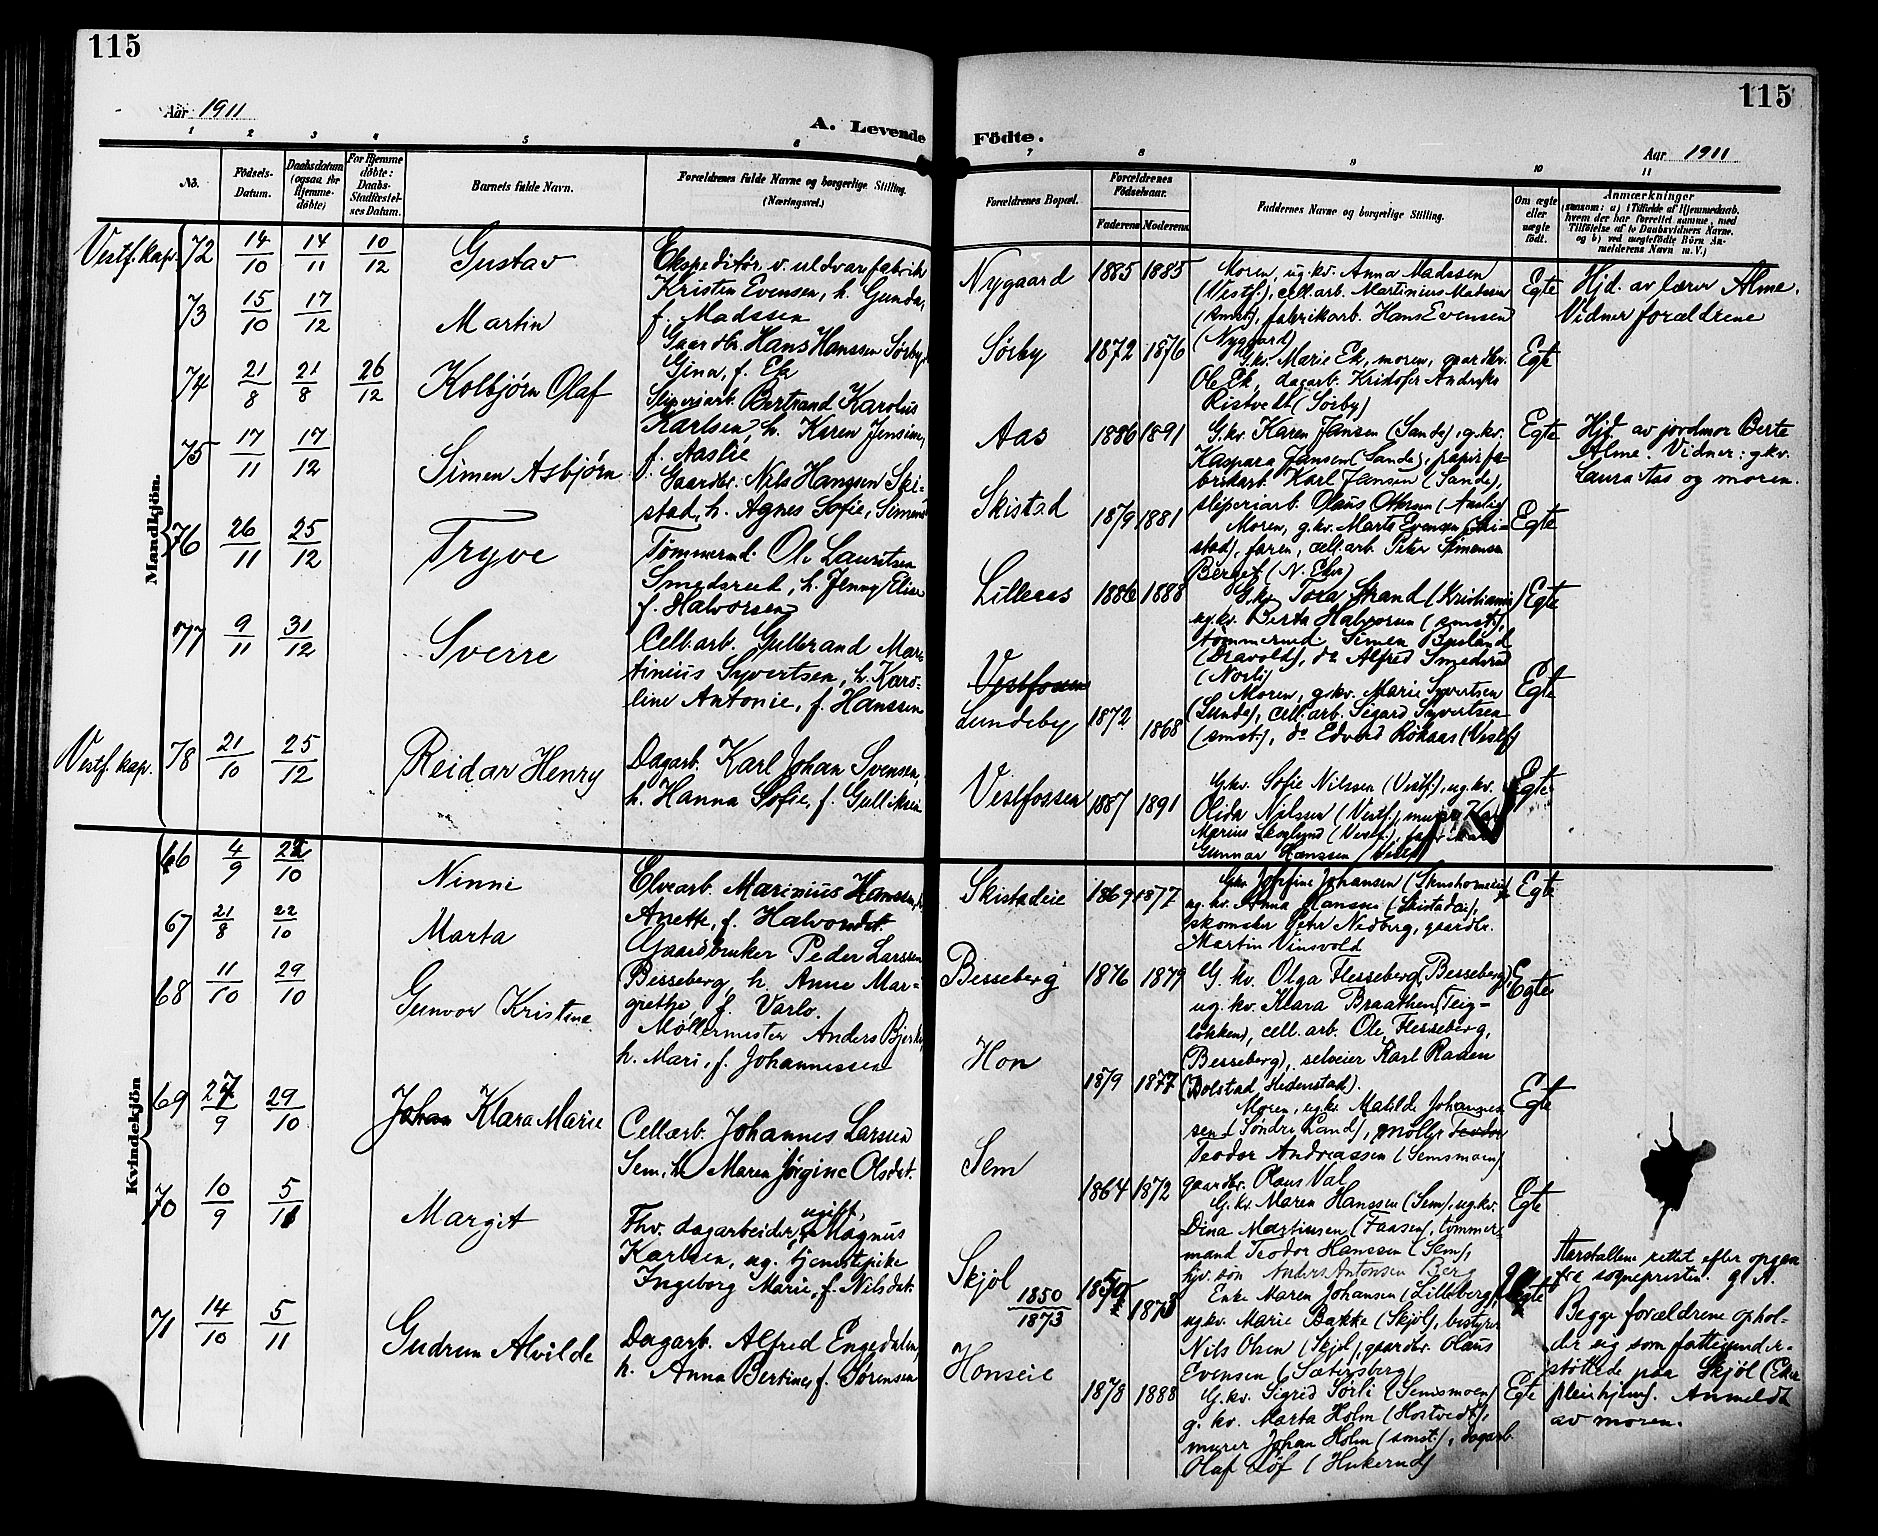 115
115
Aar 1911
A. Levende
Födte.
Aar 1911
1 2 3 4 5 6
7 8 9 10 11
No.
Födsels-Datum.
Daabsdatum (ogsaa for Hjemme-døbte)
For Hjemme døbte: Daabs-Stadfæstel-ses Datum.
Barnets fulde Navn.
Forældrenes fulde Navne og borgerlige Stilling. (Næringsvei.)
Forældrenes Bopæl.
Forældrenes Födselsaar.
Faderens Moderens
Faddernes Navne og borgerlige Stilling.
Om ægte eller uægte født.
Anmærkninger
(saasom: a) i Tilfælde af Hjemmedaab, hvem der har forrettet samme, med Tilføielse af to Daabsvidners Navne, og b) ved uægtefødte Børn Anmelderens Navn m. V.)
Mandkjön.
Vestf. kap. 72 14/10 14/11 10/12 Gustav
Ekspeditør v. uldvarefabrik
Kristen Evensen, h. Gunda,
f. Madssen
Nygaard 1885 1885
Moren, ug. kv. Anna Madssen
(Vestf.), cell. arb. Martinius Madssen
(smst.), fabrikarb. Hans Evensen
(Nygaard)
Egte
Hjd. av lærer Alme.
Vidner forældrene
73 15/10 17/12 Martin
Gaardbr. Hans Hanssen Sørby,
Gina, f. Ek
Sørby 1872 1876
G. kv. Marie Ek, moren, gaardbr.
Ole Ek, dagarb. Kristofer Andreas
Ristvedt (Sørby)
Egte
74 21/8 21/8 26/12 Kolbjørn Olaf
Sliperiarb. Bertrand Karolus
Karlsen, h. Karen Jensine,
f. Aaslie
Aas 1886 1891
G. kv. Karen Jansen (Sande), g. kv.
Kaspara Jansen (Sande), papirfa-
brikarb. Karl Jansen (Sande),
sliperiarb. Olaus Ottersen (Aaslie)
Egte
Hjd. av jordmor Berte
Alme. Vidner: g. kv.
Laura Aas og moren.
75 17/11 17/12 Simen Asbjørn
Gaardbr. Nils Hanssen Ski-
stad, h. Agnes Sofie, Simens
Skistad 1879 1881
Moren, g. kv. Marte Evensen (Ski-
stad), faren, cell. arb. Peter Simensen
Berget (N. Eker)
Egte
76 26/11 25/12 Tryve
Tømmermd. Ole Lauritsen
Smedsrud, h. Jenny Elise
f. Halvorsen
Lilleaas 1886 1888
G. kv. Tora Strand (Kristiania)
ug. kv. Berta Halvorsen (smst.),
tømmermd. Simen Bjørland
(Dravold), do Alfred Smedsrud
(Norli)
Egte
77 9/11 31/12 Sverre
Cell. arb. Gulbrand Mar-
tinius Syvertsen, h. Karo-
line Antonie, f. Hanssen
Vestfossen
Lundeby 1872 1868
Moren, g. kv. Marie Syvertsen
(Lunde), cell. arb. Sigard Syvertsen
(smst.), do Edvard Røkaas (Vestf)
Egte
Vestf. kap. 78 21/10 25/12 Reidar Henry
Dagarb. Karl Johan Svensen,
h. Hanna Sofie, f. Gulliksen
Vestfossen 1887 1891
G. kv. Sofie Nilssen (Vestf.), ug. kv.
Olida Nilssen (Vestf.), murer Karl
Marius Skoglund (Vestf.),
Gunnar Hanssen
Egte
Kvindekjön
66 4/9 22/10 Ninni
Elvearb. Marinius Hanssen, h.
Anette, f. Halvorsdt.
Skistadeie 1869 1877
G. kv. Josefine Johansen
ug. kv. Anna Hanssen (Skistadeie),
skomaker Peter Nedberg, gaardbr.
Martin Vinsvold
Egte
67 21/8 22/10 Marta
Gaardsbruker Peder Larssen
Besseberg, h. Anne Mar-
grethe, f. Varlo.
Besseberg 1876 1879
G. kv. Olga Flesseberg (Besseberg),
ug. kv. Klara Braathen (Teig-
løkken), cell. arb. Ole Flesseberg,
(Besseberg), selveier Karl Raaen
(Bolstad, Hedenstad).
Egte
68 11/10 29/10 Gunvor Kristine
Møllermester Anders Bjerke,
h. Mari, f. Johannessen
Hon 1879 1877
Moren, ug. kv. Matilde Johannes-
sen (Søndre Land), møller Teodor
Teodor Andreassen (Semsmoen)
gaardbr. Olaus Val
Egte
69 27/9 29/10 Johan Klara Marie
Cellarb. Johannes Larssen
Sem, h. Maren Jørgine Olsdat.
Sem 1864 1872
G. kv. Maren Hanssen (Sem), ug. kv.
Dina Martinsen (Faasen), tømmer-
mand Teodor Hanssen (Sem),
hjv. søn Anders Antonsen Berg
Egte
70 10/9 5/11 Margit
Fhv. dagarbeider, ugift, Magnus
Karlsen, ug. tjenestepike
Ingeborg Marie, f. Nilsdat.
Skjøl 1850/1873 1850 1873
Enke Maren Johansen (Lilleberg),
ug. kv. Marie Bakke (Skjøl), bestyrer
Nils Olsen (Skjøl), gaardbr. Olaus
Evensen (Sætersberg)
Aarstallene rettet efter opgave
fra sognepresten. g. A.
Begge forældrene ophol-
der sig som fattigunder-
støttede paa Skjøl (Eker
pleiehjem). Anmeldt
av moren.
71 14/10 5/11 Gudrun Alvilde
Dagarb. Alfred Engedalen,
h. Anna Bertine, f. Sørensen
Honseie 1878 1888
G. kv. Sigrid Sørli (Semsmoen)
g. kv. Marta Holm (Hostvedt),
murer Johan Holm (smst.), dagarb.
Olaf Løf (Hukerud)
Egte